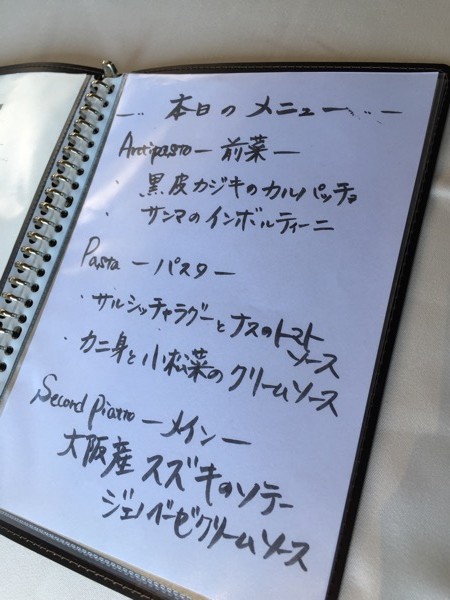 本日のメニュー
Antipasto ー 前菜 ー
・黒皮カジキのカルパッチョ
・サンマのインボルティーニ
Pasta ー パスタ ー
・サルシッチャラグーとナスのトマト
ソース
・カニ身と小松菜のクリームソース
Second Piatto ー メイン ー
大阪産 スズキのソテー
ジェノベーゼクリームソース